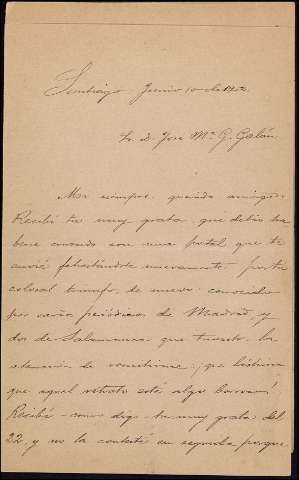 Santiago Junio 10 de 1902
Sr. D. José Mª G. Galán
Mi siempre querido amigo:
Recibí tu muy grata que debió ha
berse cruzado con una postal que te
envié felicitándote nuevamente por tu
colosal triunfo, de nuevo conocido
por varios periódicos de Madrid y
dos de Salamanca que tuviste la
atención de remitirme; ¡que lástima
que aquel retrato esté algo borroso!
Recibí como digo tu muy grata del
22, y no la contesté en seguida porque